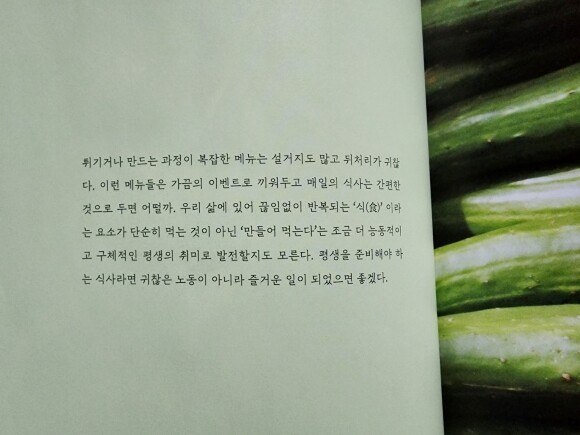 튀기거나 만드는 과정이 복잡한 메뉴는 설거지도 많고 뒤처리가 귀찮
다. 이런 메뉴들은 가끔의 이벤트로 끼워두고 매일의 식사는 간편한
것으로 두면 어떨까. 우리 삶에 있어 끊임없이 반복되는 ‘식(食)’ 이라
는 요소가 단순히 먹는 것이 아닌 ‘만들어 먹는다’는 조금 더 능동적이
고 구체적인 평생의 취미로 발전할지도 모른다. 평생을 준비해야 하
는 식사라면 귀찮은 노동이 아니라 즐거운 일이 되었으면 좋겠다.